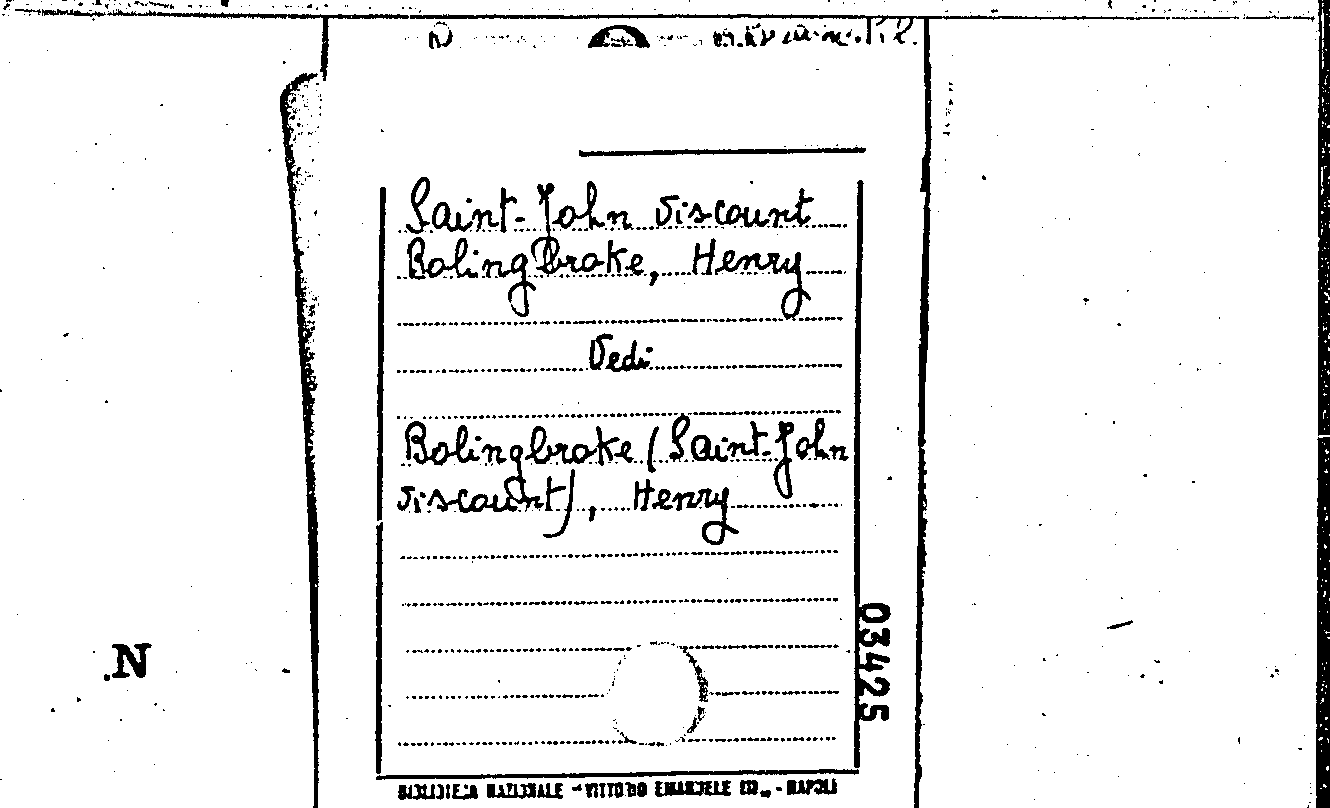 Saint-John Viscount
Bolingbroke, Henry
Vedi
Bolingbroke (Saint-John
Viscount), Henry
03425
N
BIBLIOTECA NAZIONALE "VITTORIO EMANUELE III" - NAPOLI